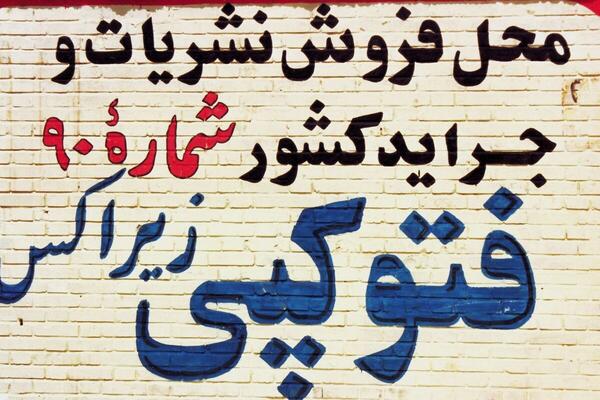 محل فروش نشریات و
جراید کشور شمارهٔ ۹۰
فتوکپی زیراکس